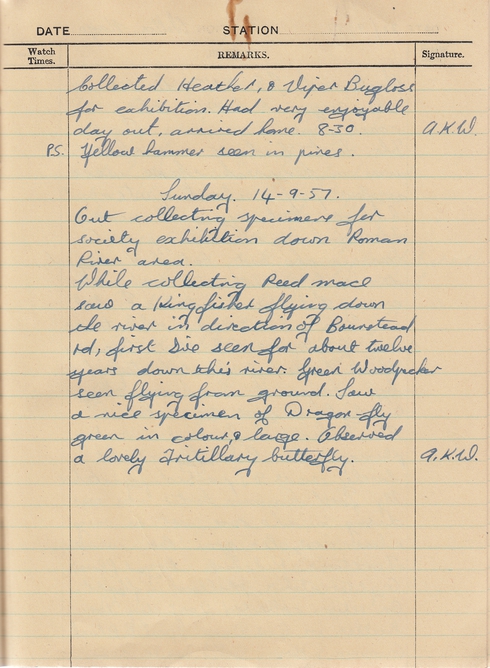 DATE STATION
Watch Times. REMARKS. Signature.
Collected Heather, & Viper Bugloss
for exhibition. Had very enjoyable
day out, arrived home. 8-30. A.K.W.
P.S. Yellow hammer seen in pines.
Sunday. 14-9-57.
Out collecting specimens for
society exhibition down Roman
River area.
While collecting Reed mace
saw a Kingfisher flying down
the river in direction of Bounstead
rd, first I've seen for about twelve
years down this river. Green Woodpecker
seen flying from ground. Saw
a nice specimen of Dragon-fly
green in colour, & large. Observed
a lovely Fritillary butterfly. A.K.W.